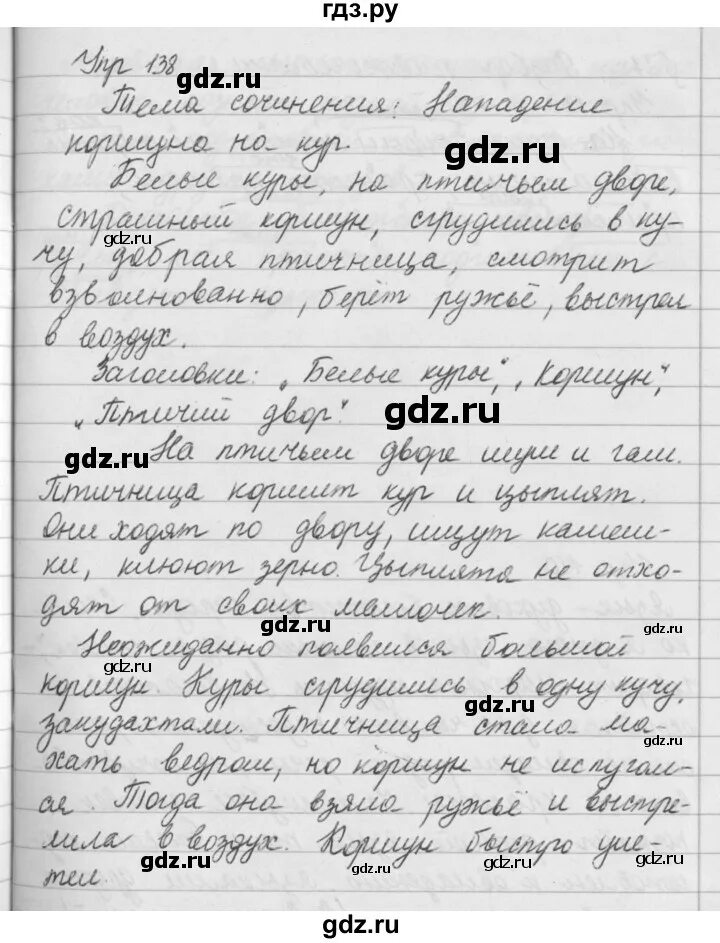 гдз.ру
Упр 138
gdz.ru
Тема сочинения: Нападение
gdz.ru
gdz.ru
коршуна на кур.
Белые куры, на птичьем дворе,
страшный коршун, сгрудились в ку-
gdz.ru
gdz.ru
чу, добрая птичница, смотрит
взволнованно, берёт ружьё, выстрел
gdz.ru
в воздух.
Заголовки: „Белые куры", „Коршун",
„Птичий двор".
gdz.ru
gdz.ru
На птичьем дворе шум и гам.
Птичница кормит кур и цыплят.
gdz.ru
Они ходят по двору, ищут камеш-
ки, клюют зерно. Цыплята не отхо-
дят от своих мамочек.
gdz.ru
gdz.ru
Неожиданно появился большой
коршун. Куры сгрудились в одну кучу,
gdz.ru
закудахтали. Птичница стала ма-
gdz.ru
хать ведром, но коршун не испугал-
ся. Тогда она взяла ружьё и выстре-
gdz.ru
лила в воздух. Коршун быстро уле-
gdz.ru
gdz.ru
тел.
gdz.ru
gdz.ru